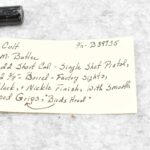 Colt S/N- B39735
M. Butler
.22 Short Cal - Single Shot Pistol,
2 ⅜" Barrel - Factory Sights,
Black, + Nickle Finish, With Smooth
Wood Grips; "Birds Head"